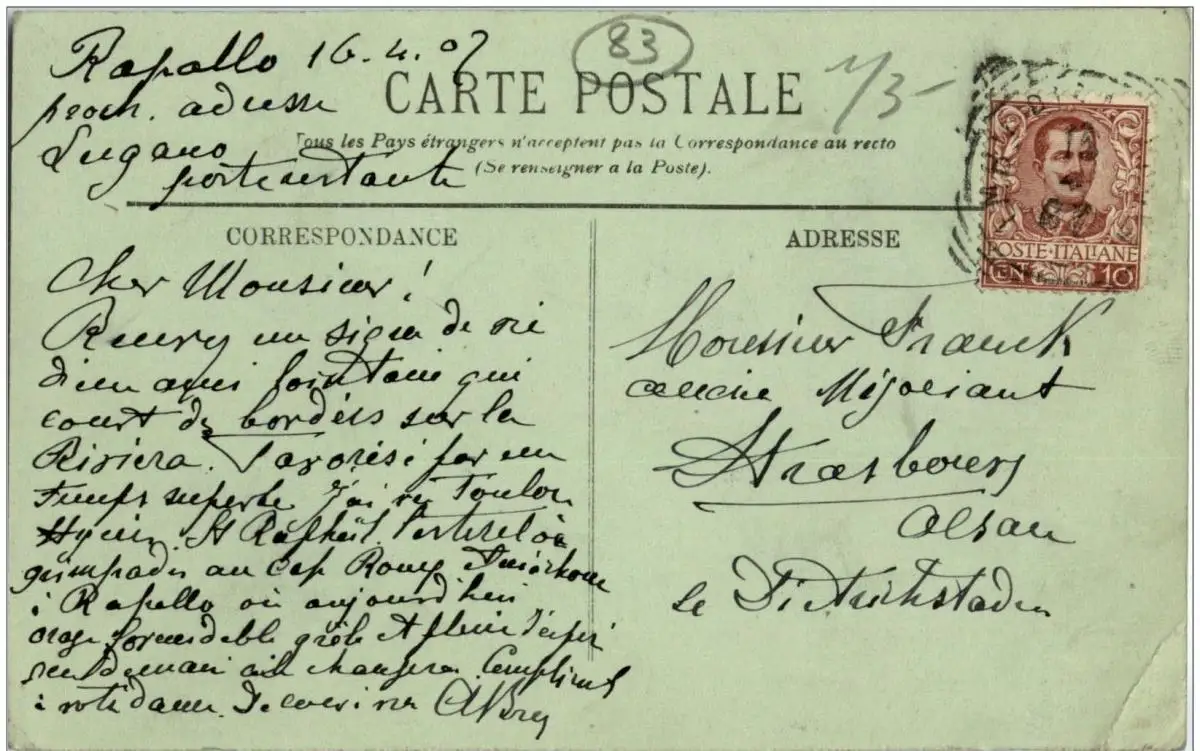 83
Rapallo 16.4.07
proch. adresse
Lugano
poste restante
CARTE POSTALE
Tous les Pays étrangers n'acceptent pas la Correspondance au recto
(Se renseigner a la Poste).
CORRESPONDANCE
Cher Monsieur!
un signe de vie
d'un ami lointain qui
court de bordées sur la
Riviera. Favorisé par un
temps superbe j'ai vu Toulon
Hyères. St Raphaël. l'esterel où
grimpades au Cap Roux
à Rapallo où aujourd'hui
orage formidable grêle et pluie
demain changera Compliments
à votre dame.
ADRESSE
POSTE·ITALIANE
CEN 10
Monsieur Franck
ancien Négociant
Strasbourg
Alsace
Dietrichstaden